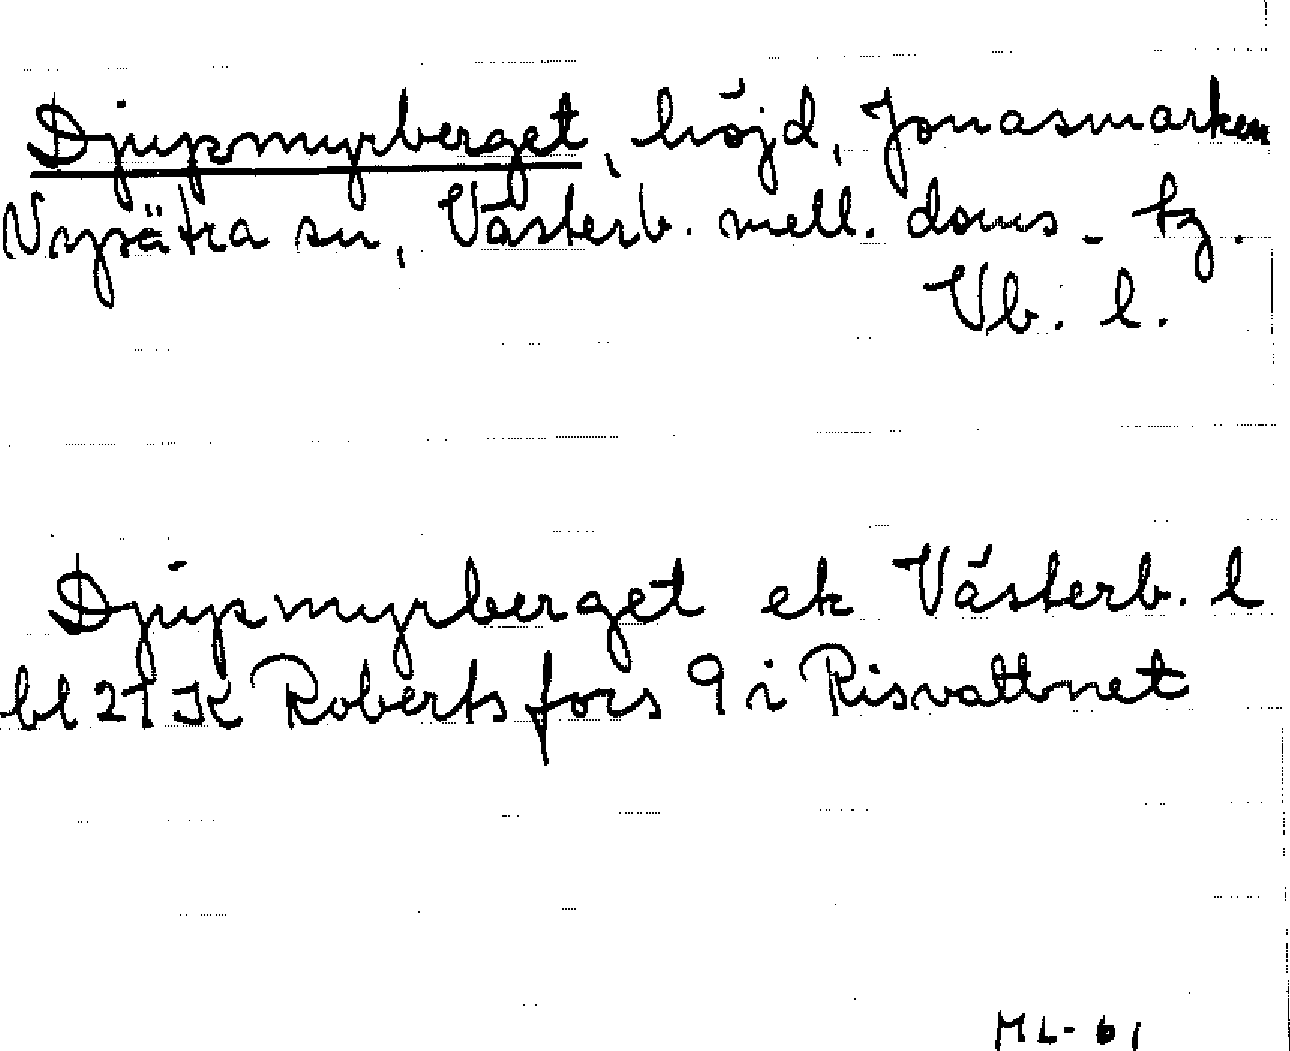 Djupmyrberget, höjd, Jonasmarken
Nysätra sn, Västerb. mell. doms. tg.
Vb. l.
Djupmyrberget ek Västerb. l
bl 21 K Robertsfors 9 i Risvattnet
ML-61